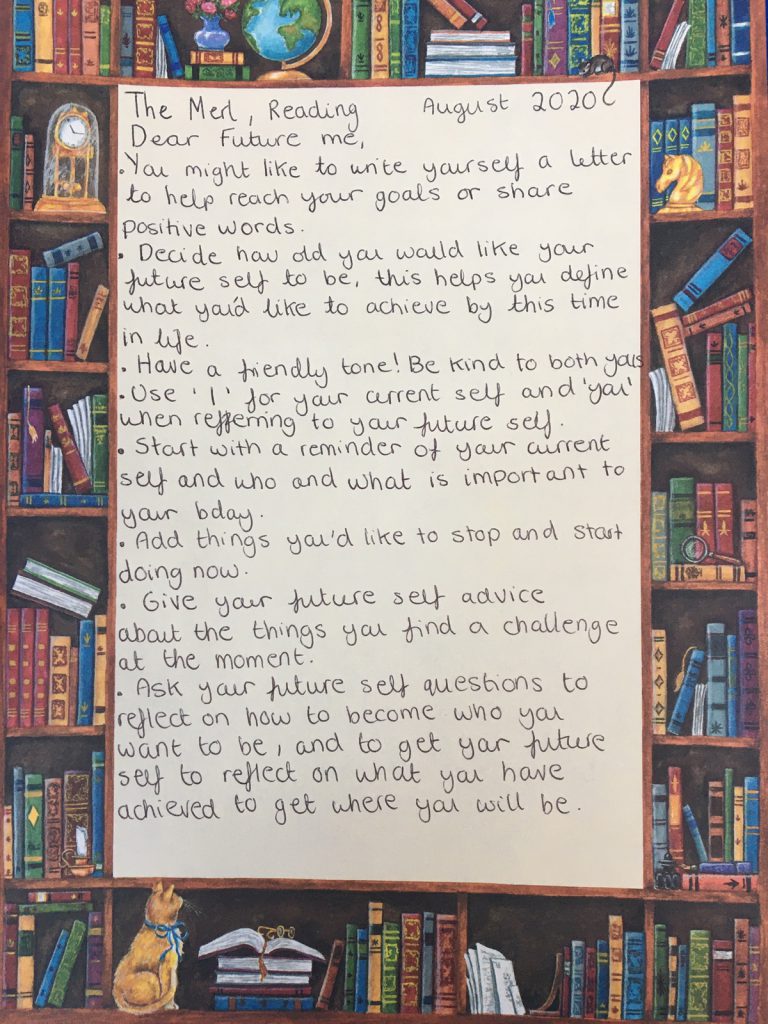 The Merl, Reading August 2020
Dear Future me,
• You might like to write yourself a letter
to help reach your goals or share
positive words.
• Decide how old you would like your
future self to be, this helps you define
what you'd like to achieve by this time
in life.
• Have a friendly tone! Be kind to both yous
• Use 'I' for your current self and 'you'
when referring to your future self.
• Start with a reminder of your current
self and who and what is important to
your bday.
• Add things you'd like to stop and start
doing now.
• Give your future self advice
about the things you find a challenge
at the moment.
• Ask your future self questions to
reflect on how to become who you
want to be, and to get your future
self to reflect on what you have
achieved to get where you will be.